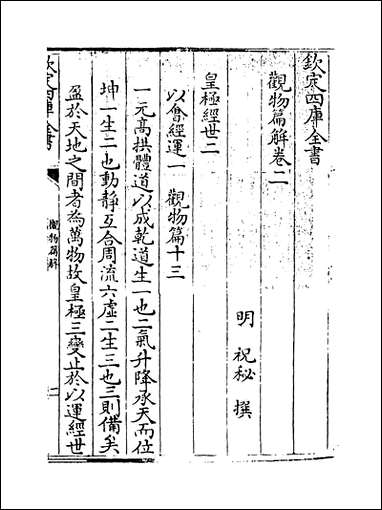 欽定四庫全書
觀物篇解卷二
明 祝秘 撰
皇極經世二
以會經運一 觀物篇十三
一元高拱體道以成乾道生一也二氣升降承天而位
坤一生二也動靜互合周流六虛二生三也三則備矣
盈於天地之間者為萬物故皇極三變止於以運經世
欽定四庫全書
觀物篇解
一